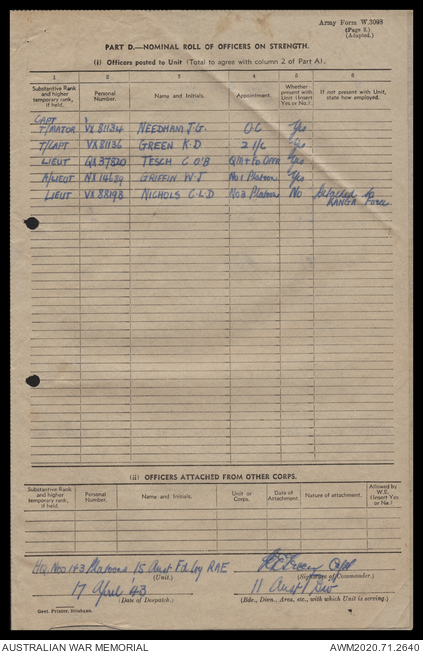 Army Form W.3008
(Page 2.)
(Adapted.)
PART D.—NOMINAL ROLL OF OFFICERS ON STRENGTH.
(i) Officers posted to Unit (Total to agree with column 2 of Part A).
1 2 3 4 5 6
Substantive Rank and higher temporary rank, if held. Personal Number. Name and Initials. Appointment. Whether present with Unit (Insert Yes or No.) If not present with Unit, state how employed.
CAPT
T/MAJOR VX81134 NEEDHAM J.G. OC Yes
T/CAPT VX81136 GREEN K.D 2 I/C Yes
LIEUT QX37820 TESCH C O'B Q/M + Fd Offr Yes
A/LIEUT NX14689 GRIFFIN W.J No 1 Platoon Yes
LIEUT VX88198 NICHOLS C.L.D No 3 Platoon No Detached to
KANGA Force
(ii) OFFICERS ATTACHED FROM OTHER CORPS.
Substantive Rank and higher temporary rank, if held. Personal Number. Name and Initials. Unit or Corps. Date of Attachment. Nature of attachment. Allowed by W.E. (Insert Yes or No.)
HQ, Nos 1+3 Platoons 15 Aust Fd Coy RAE Capt
(Unit.) (Signature of Commander.)
17 April '43 11 Aust Div
(Date of Despatch.) (Bde., Divn., Area, etc., with which Unit is serving.)
Govt. Printer, Brisbane.
AUSTRALIAN WAR MEMORIAL AWM2020.71.2640